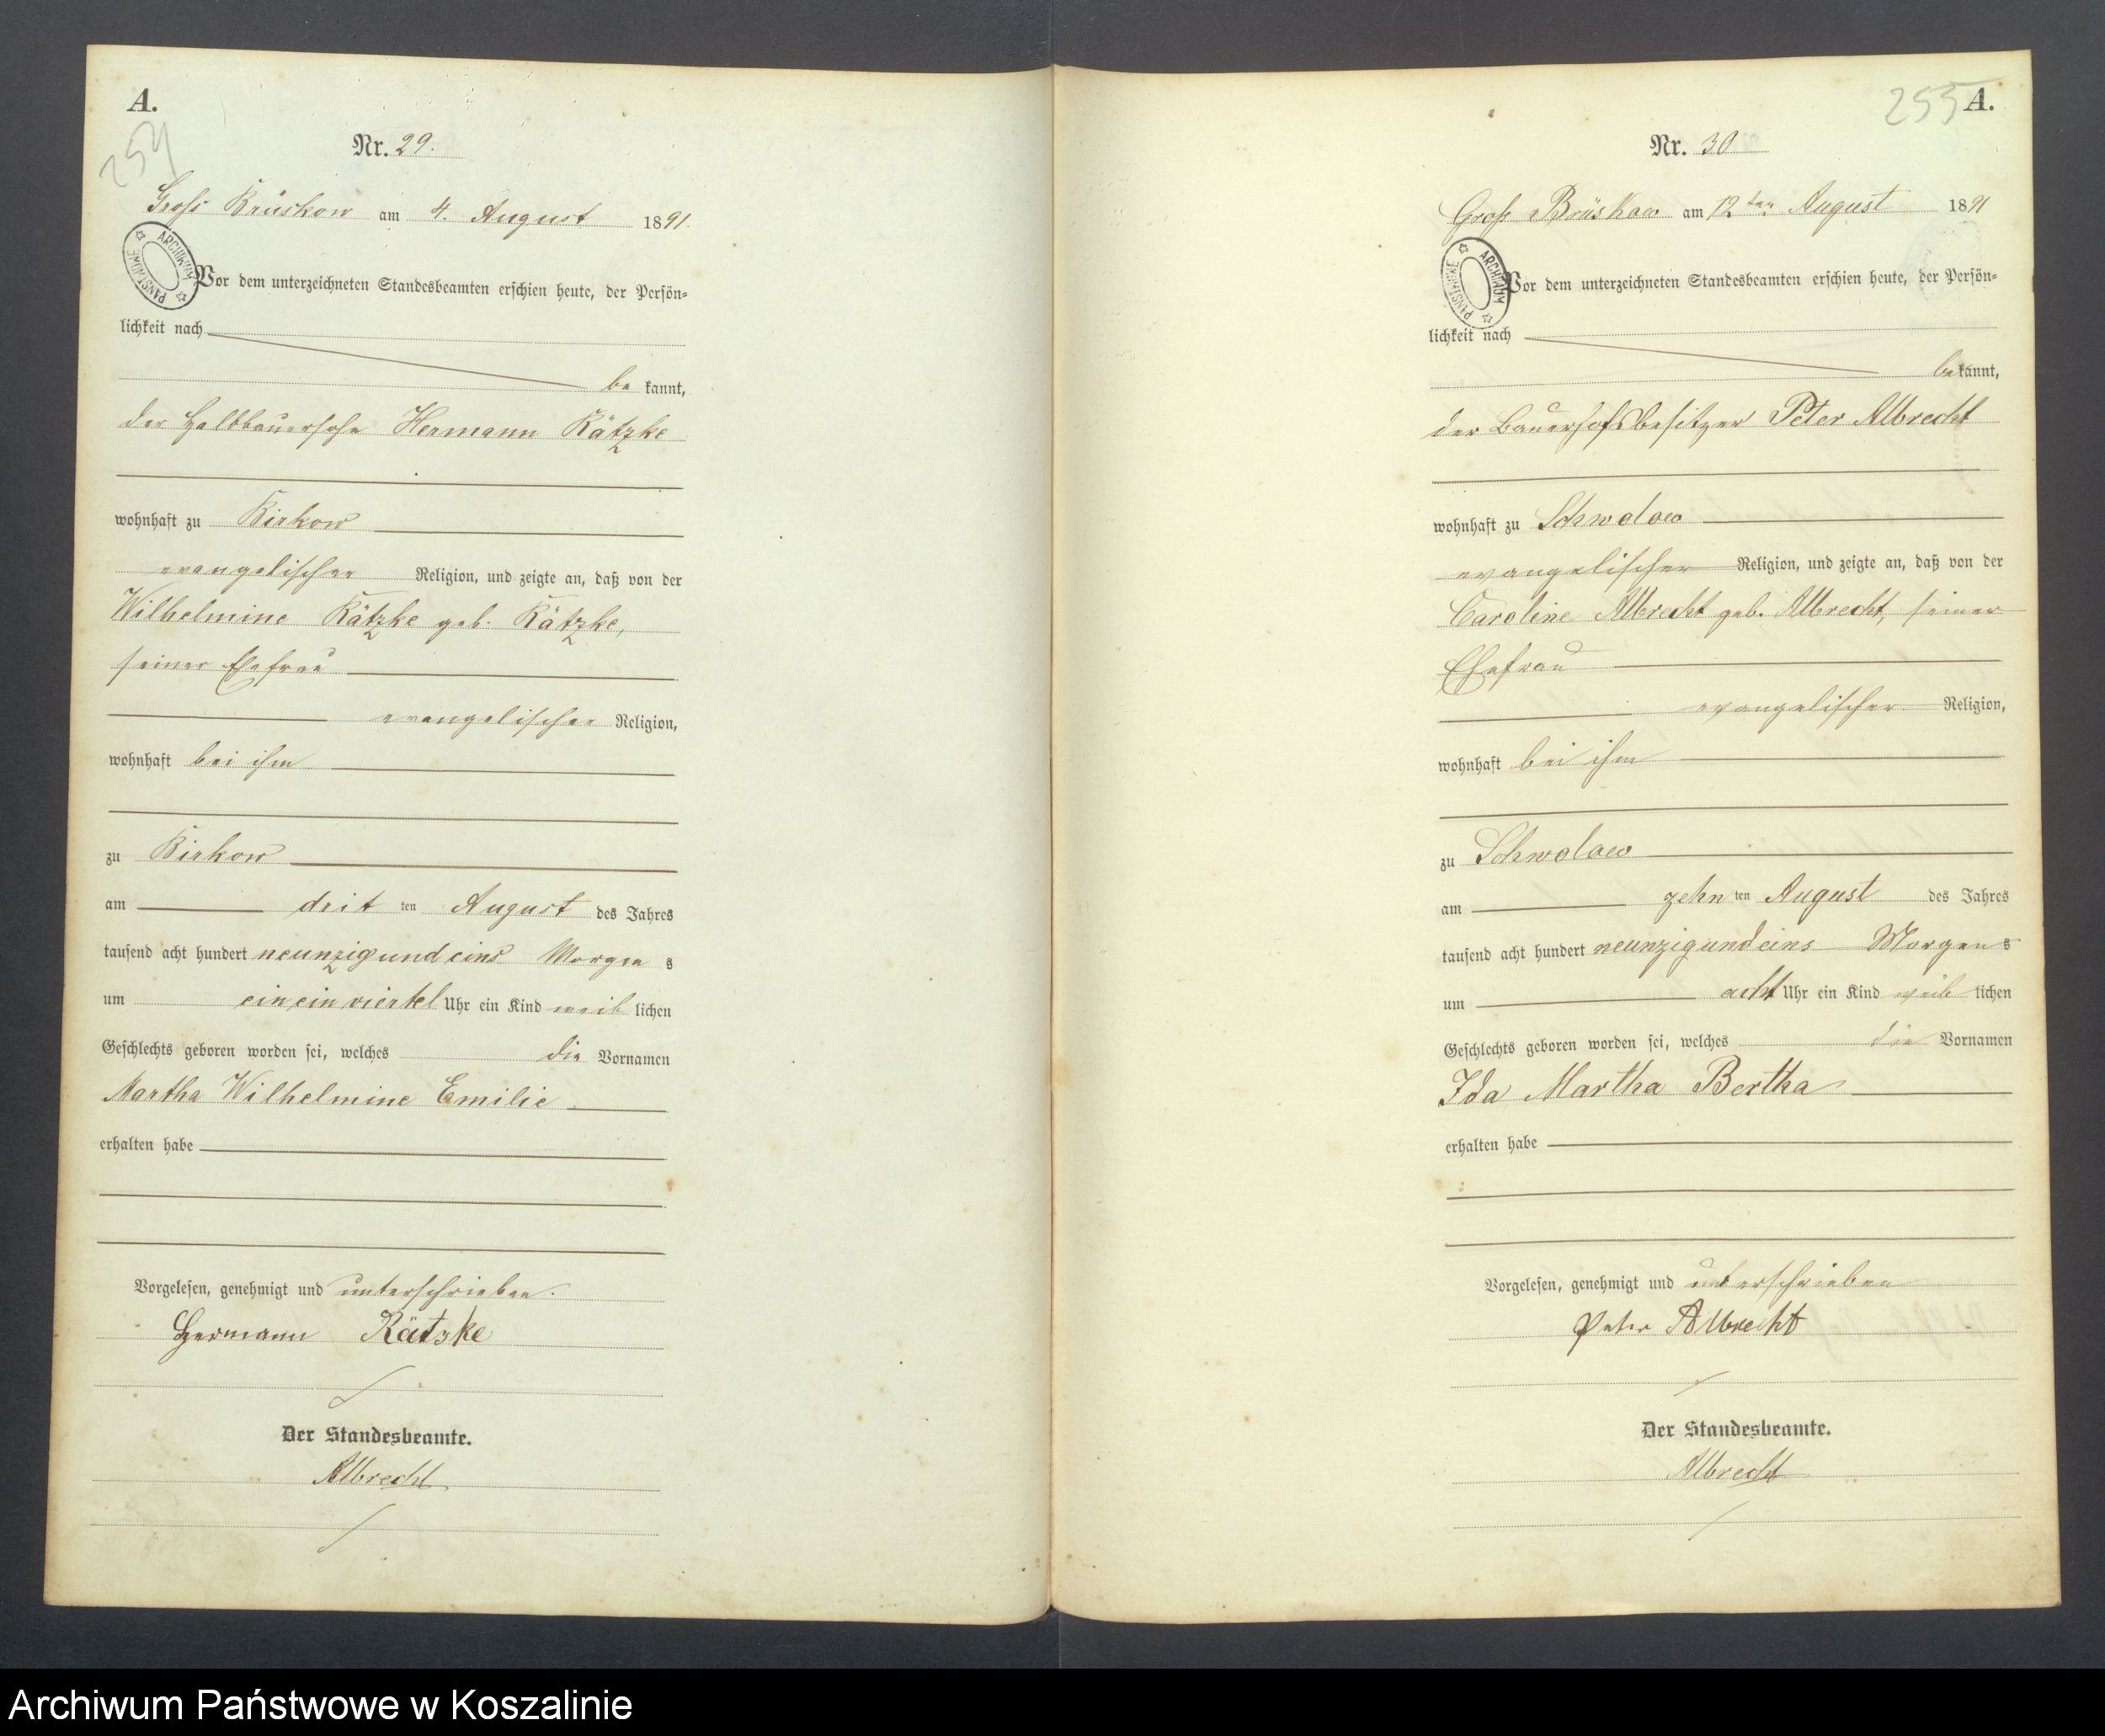 A.
254
Nr. 29.
Gross Brüskow am 4. August 1891.
ARCHIWUM PAŃSTWOWE
Vor dem unterzeichneten Standesbeamten erschien heute, der Persön-
lichkeit nach
be kannt,
der Halbbauersohn Hermann Rätzke
wohnhaft zu Birkow
evangelischer Religion, und zeigte an, daß von der
Wilhelmine Rätzke geb. Rätzke,
seiner Ehefrau
evangelischer Religion,
wohnhaft bei ihm
zu Birkow
am drit ten August des Jahres
tausend acht hundert neunzig und eins Morgen s
um ein ein viertel Uhr ein Kind weib lichen
Geschlechts geboren worden sei, welches die Vornamen
Martha Wilhelmine Emilie
erhalten habe
Vorgelesen, genehmigt und unterschrieben.
Hermann Rätzke
Der Standesbeamte.
Albrecht
255 A.
Nr. 30
Groß Brüskow am 12ten August 1891
ARCHIWUM PAŃSTWOWE
Vor dem unterzeichneten Standesbeamten erschien heute, der Persön-
lichkeit nach
bekannt,
der Bauerhofsbesitzer Peter Albrecht
wohnhaft zu Schwolow
evangelischer Religion, und zeigte an, daß von der
Caroline Albrecht geb. Albrecht, seiner
Ehefrau
evangelischer Religion,
wohnhaft bei ihm
zu Schwolow
am zehn ten August des Jahres
tausend acht hundert neunzig und eins Morgen s
um acht Uhr ein Kind weib lichen
Geschlechts geboren worden sei, welches die Vornamen
Ida Martha Bertha
erhalten habe
Vorgelesen, genehmigt und unterschrieben
Peter Albrecht
Der Standesbeamte.
Albrecht
Archiwum Państwowe w Koszalinie